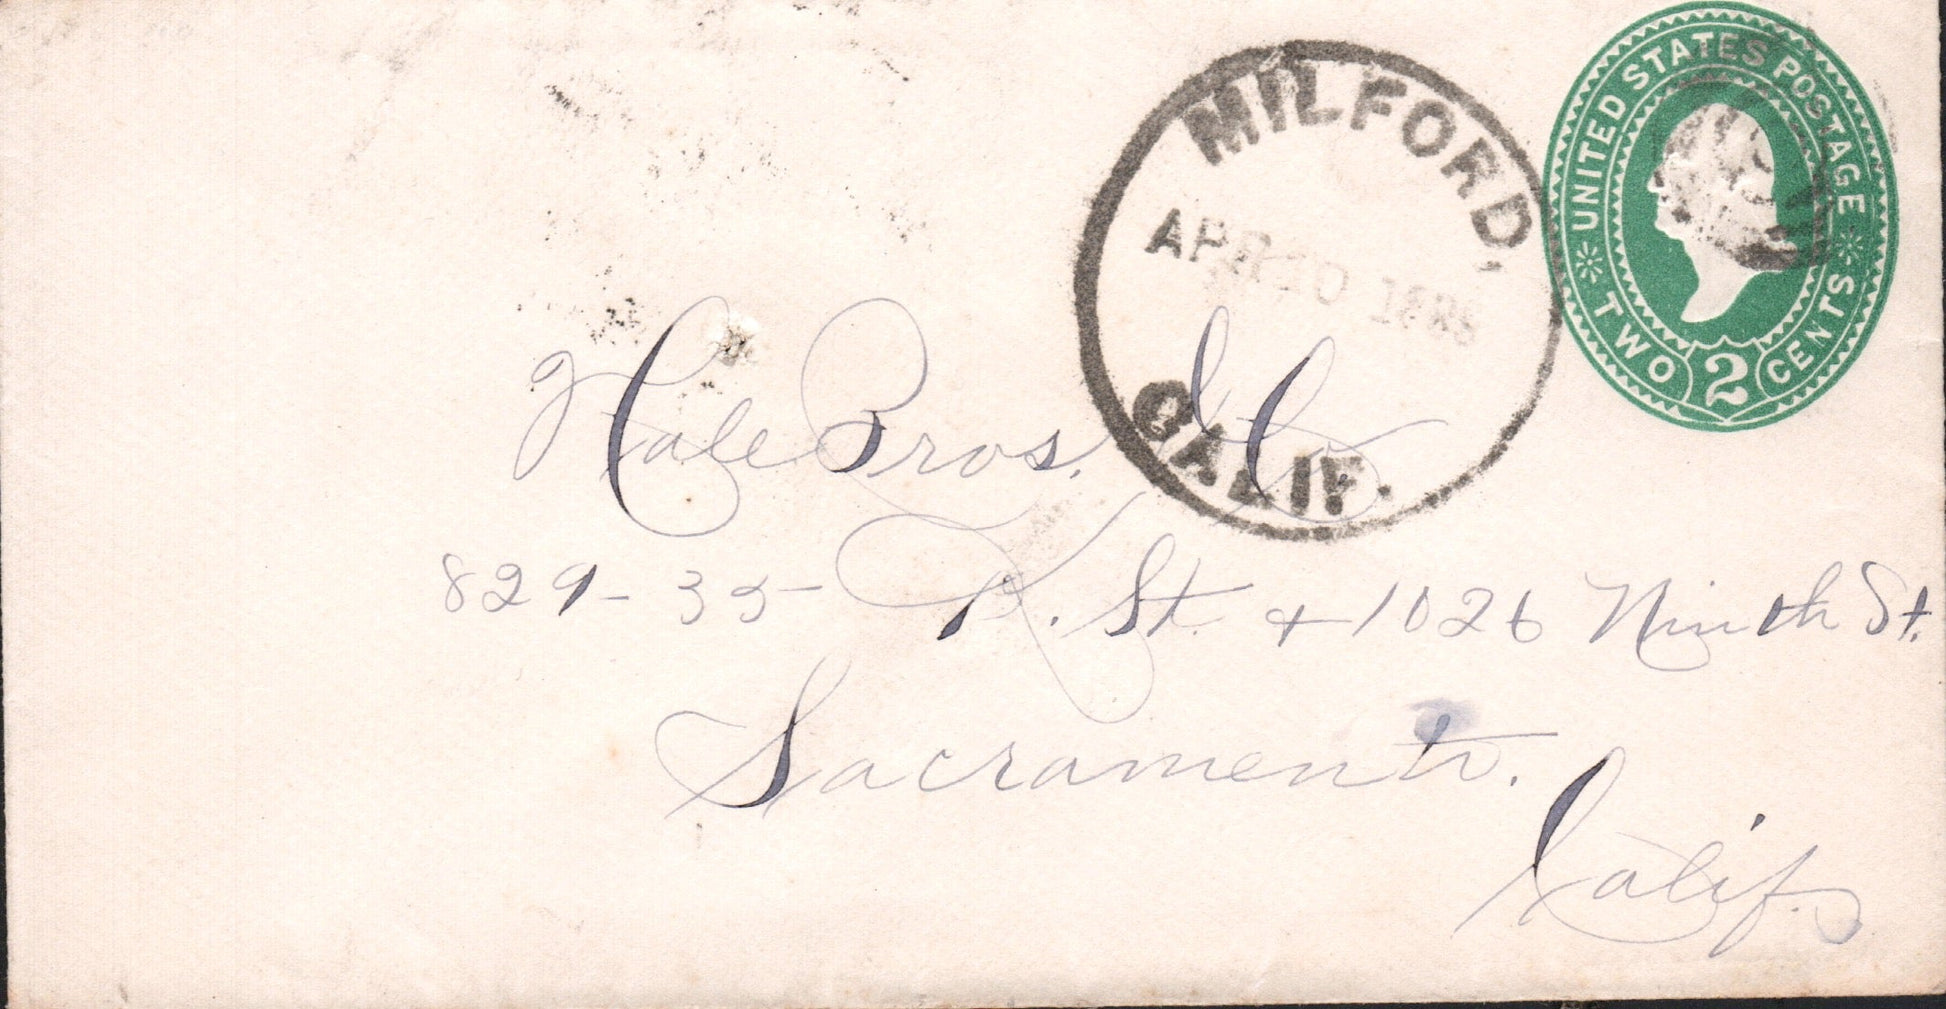 UNITED STATES POSTAGE
TWO 2 CENTS
MILFORD,
APR 20 188
CALIF.
Hale Bros. & Co
829-35- K. St. + 1026 Ninth St.
Sacramento.
Calif.